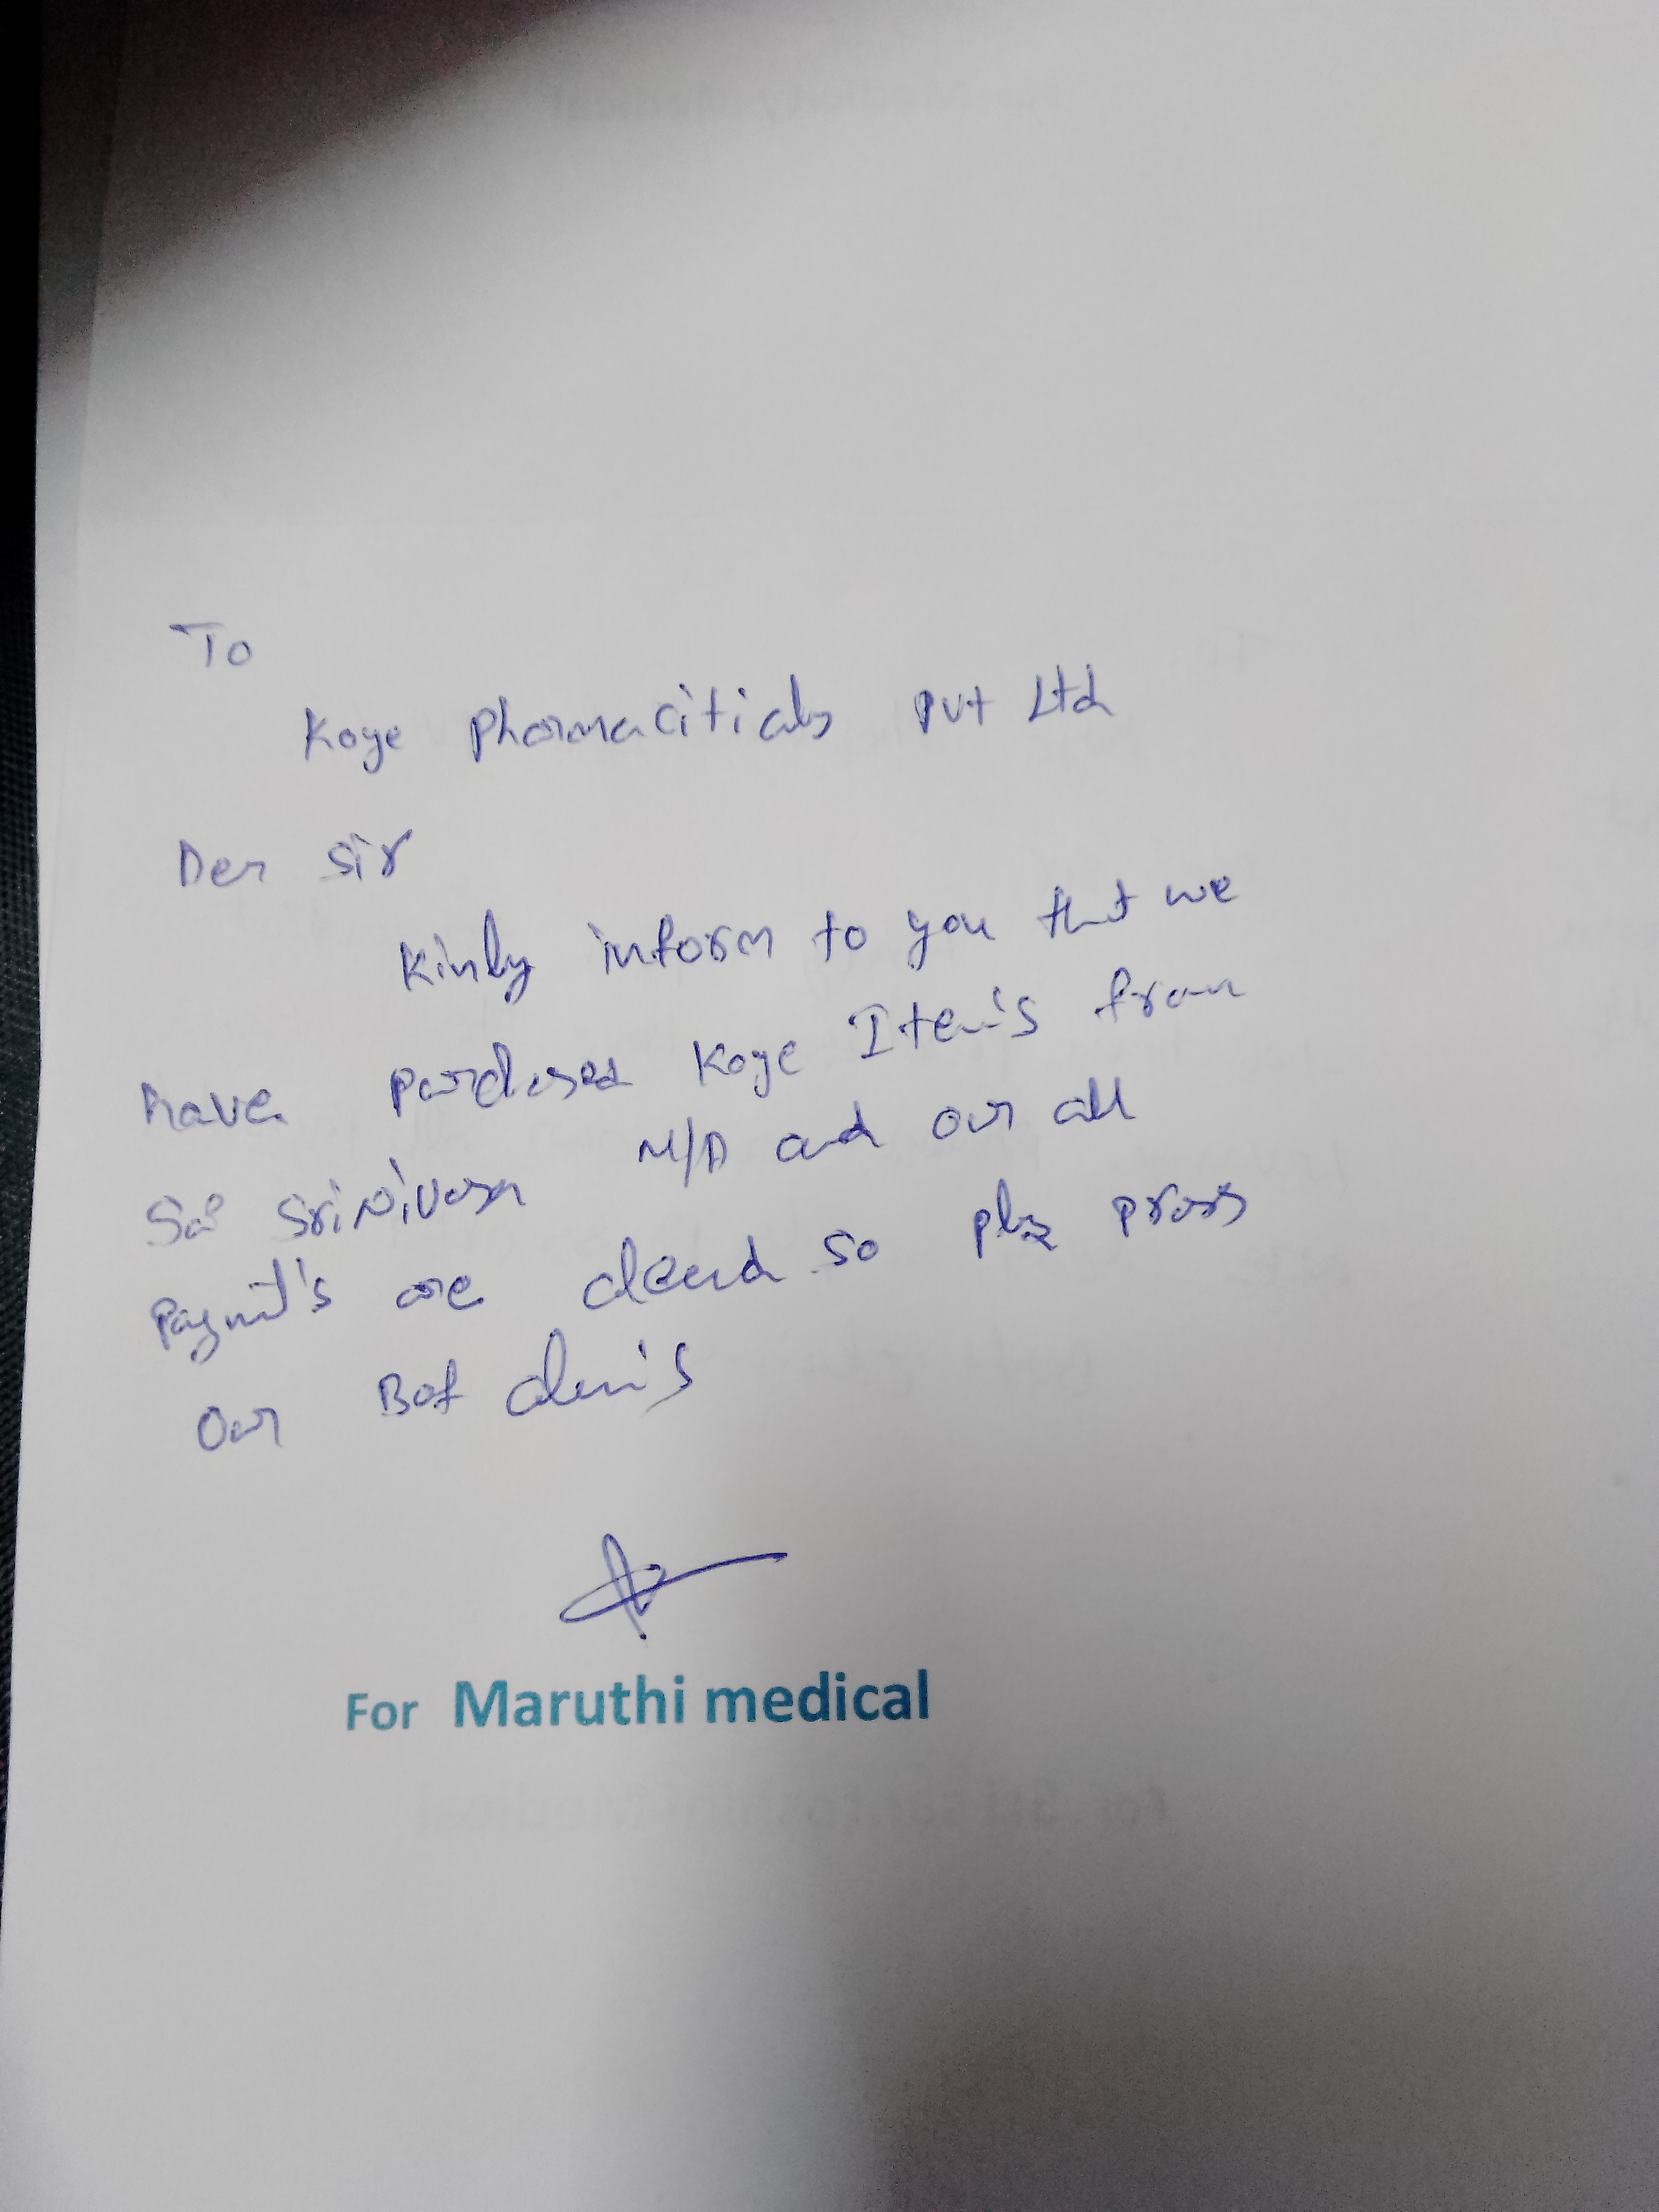 To
Koye Pharmaciticals Pvt Ltd
Der Sir
Kinly inform to you that we
have purchased Koye Item's from
Sai Srinivasa M/A and our all
Paymt's are cleard so plz
our
For Maruthi medical